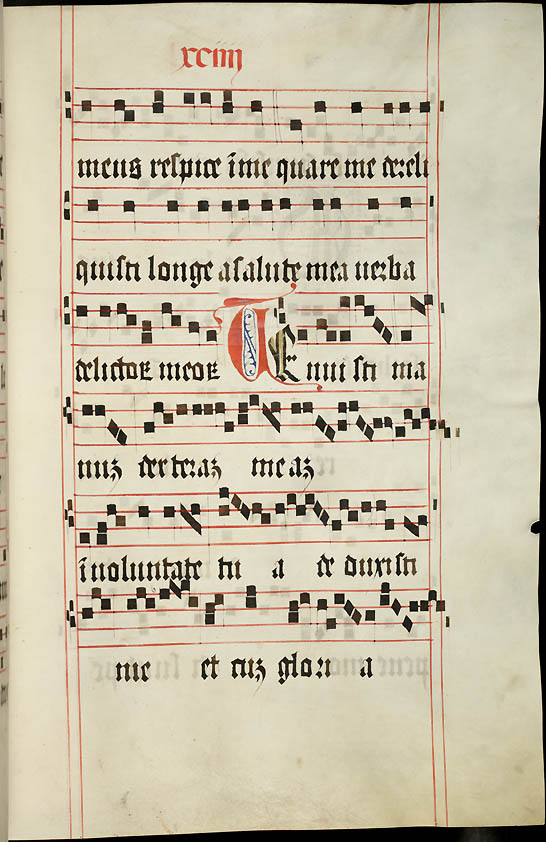 xciiij
meus respice ī me quare me dereli
quisti longe a salute mea uerba
delictoꝝ meoꝝ TE nui sti ma
nuʒ dexteraʒ meaʒ
ī uoluntate tu a de duxisti
me et cuʒ glori a